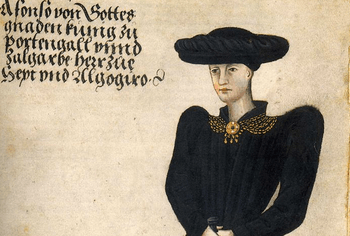 Alfonso von Gottes
gnaden kung zu
Portengall vnnd
zalgarbe herr zue
Sept vnd Algogiro.